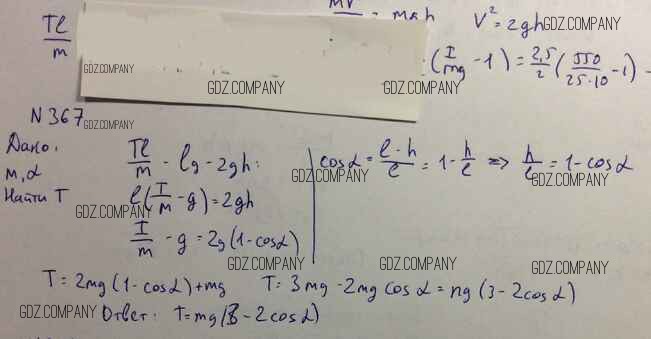 Tl/m
mv/ = mgh V² = 2gh GDZ.COMPANY
GDZ.COMPANY
GDZ.COMPANY GDZ.COMPANY
(T/mg - 1) = 2,5/2 (550/25·10 - 1) -
N 367 GDZ.COMPANY
Дано:
m, α
Найти T
Tl/m - lg = 2gh;
l(T/m - g) = 2gh
GDZ.COMPANY
T/m - g = 2g(1 - cosα)
cosα = l-h/l = 1 - h/l => h/l = 1 - cosα
GDZ.COMPANY GDZ.COMPANY
GDZ.COMPANY GDZ.COMPANY GDZ.COMPANY
T = 2mg(1 - cosα) + mg T = 3mg - 2mg cosα = mg(3 - 2cosα)
GDZ.COMPANY Ответ: T = mg(3 - 2cosα)
GDZ.COMPANY GDZ.COMPANY